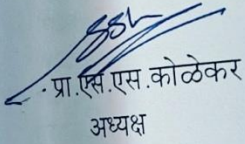 प्रा.एस.एस.कोळेकर
अध्यक्ष